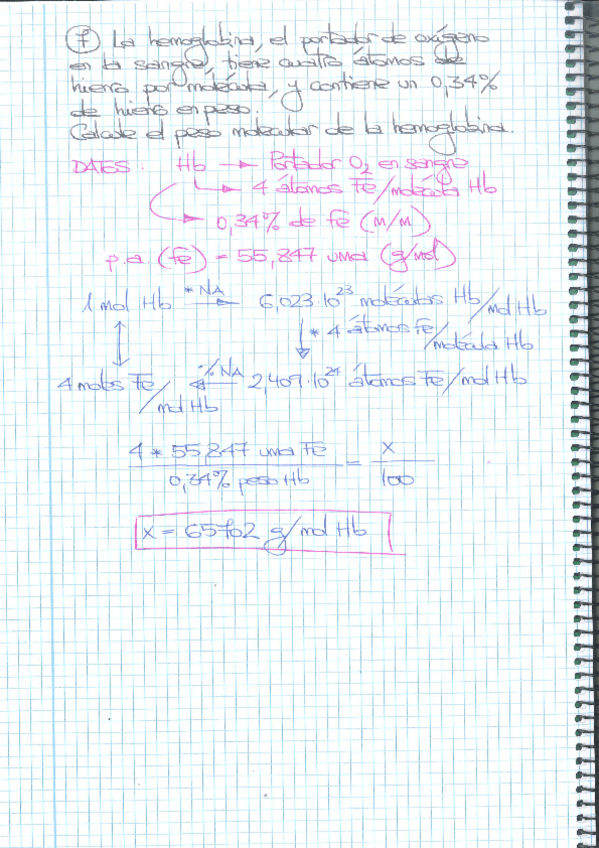 ⑦ La hemoglobina, el portador de oxígeno
en la sangre, tiene cuatro átomos de
hierro por molécula, y contiene un 0,34%
de hierro en peso.
Calcule el peso molecular de la hemoglobina.
DATOS: Hb → Portador O₂ en sangre
→ 4 átomos Fe/molécula Hb
→ 0,34% de Fe (m/m)
p.a (Fe) = 55,847 uma (g/mol)
1 mol Hb * NA → 6,023·10²³ moléculas Hb/mol Hb
↓ * 4 átomos Fe/molécula Hb
4 moles Fe/mol Hb % NA ← 2,409·10²⁴ átomos Fe/mol Hb
4 * 55,847 uma Fe / 0,34% peso Hb = X / 100
X = 65702 g/mol Hb